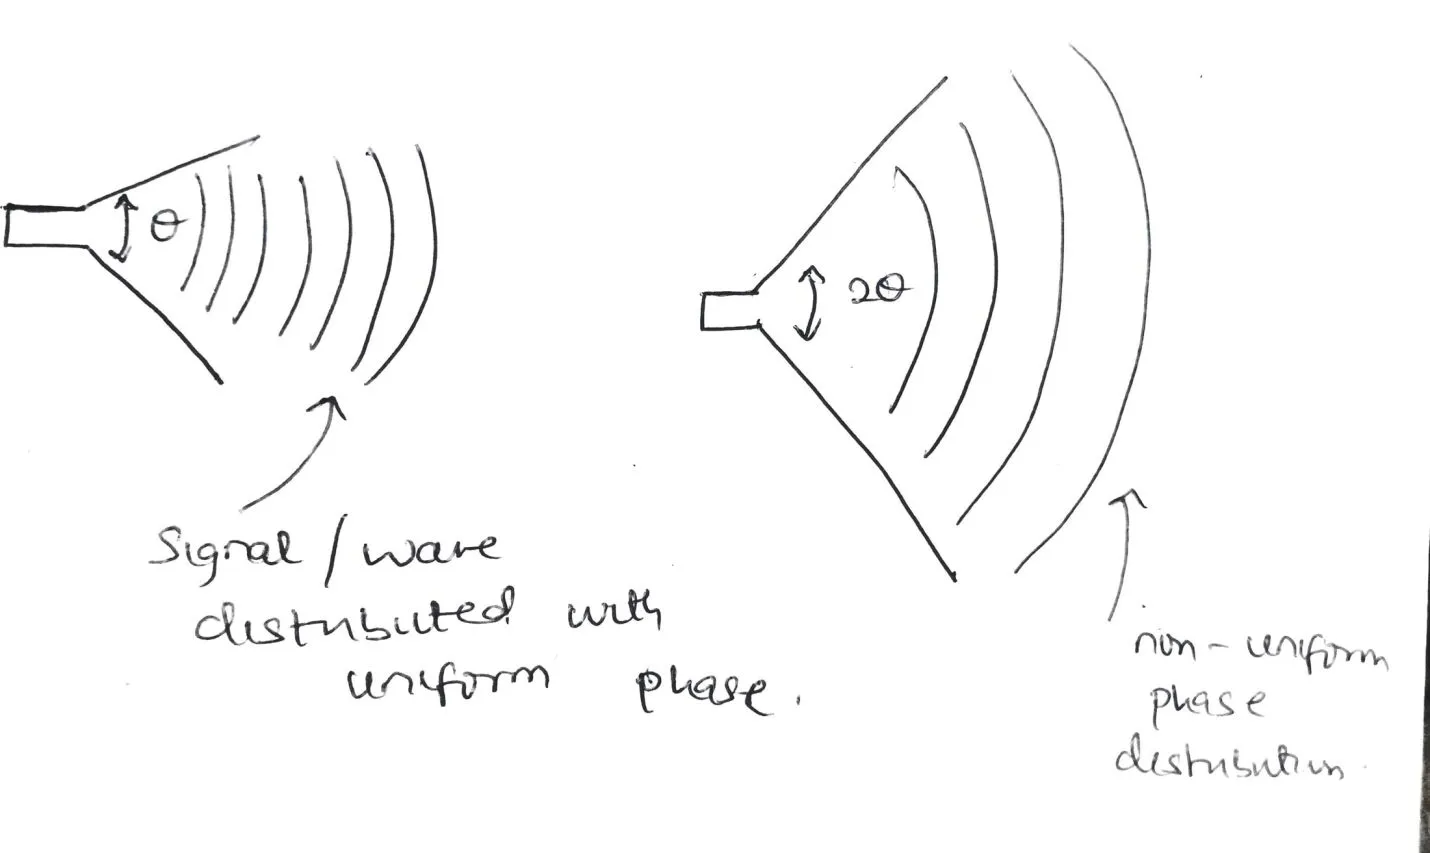 θ
2θ
Signal / wave
distributed with
uniform phase.
non-uniform
phase
distribution.